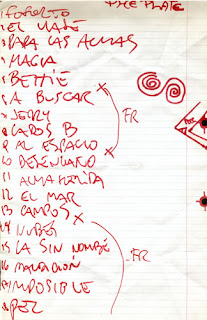 THE PLATE
2 EL MATE
3 PARA LAS ALMAS
4 MAGIA
5 BETTIE X
6 A BUSCAR
7 JERRY
8 CABOS B
9 AL ESPACIO
10 DESENGANO X
11 ALMA HERIDA
12 EL MAR
13 CAMPOS X
14 NUBES
15 LA SIN NOMBRE
16 MALDICIÓN
17 IMPOSIBLE
18 PEZ
FR
FR